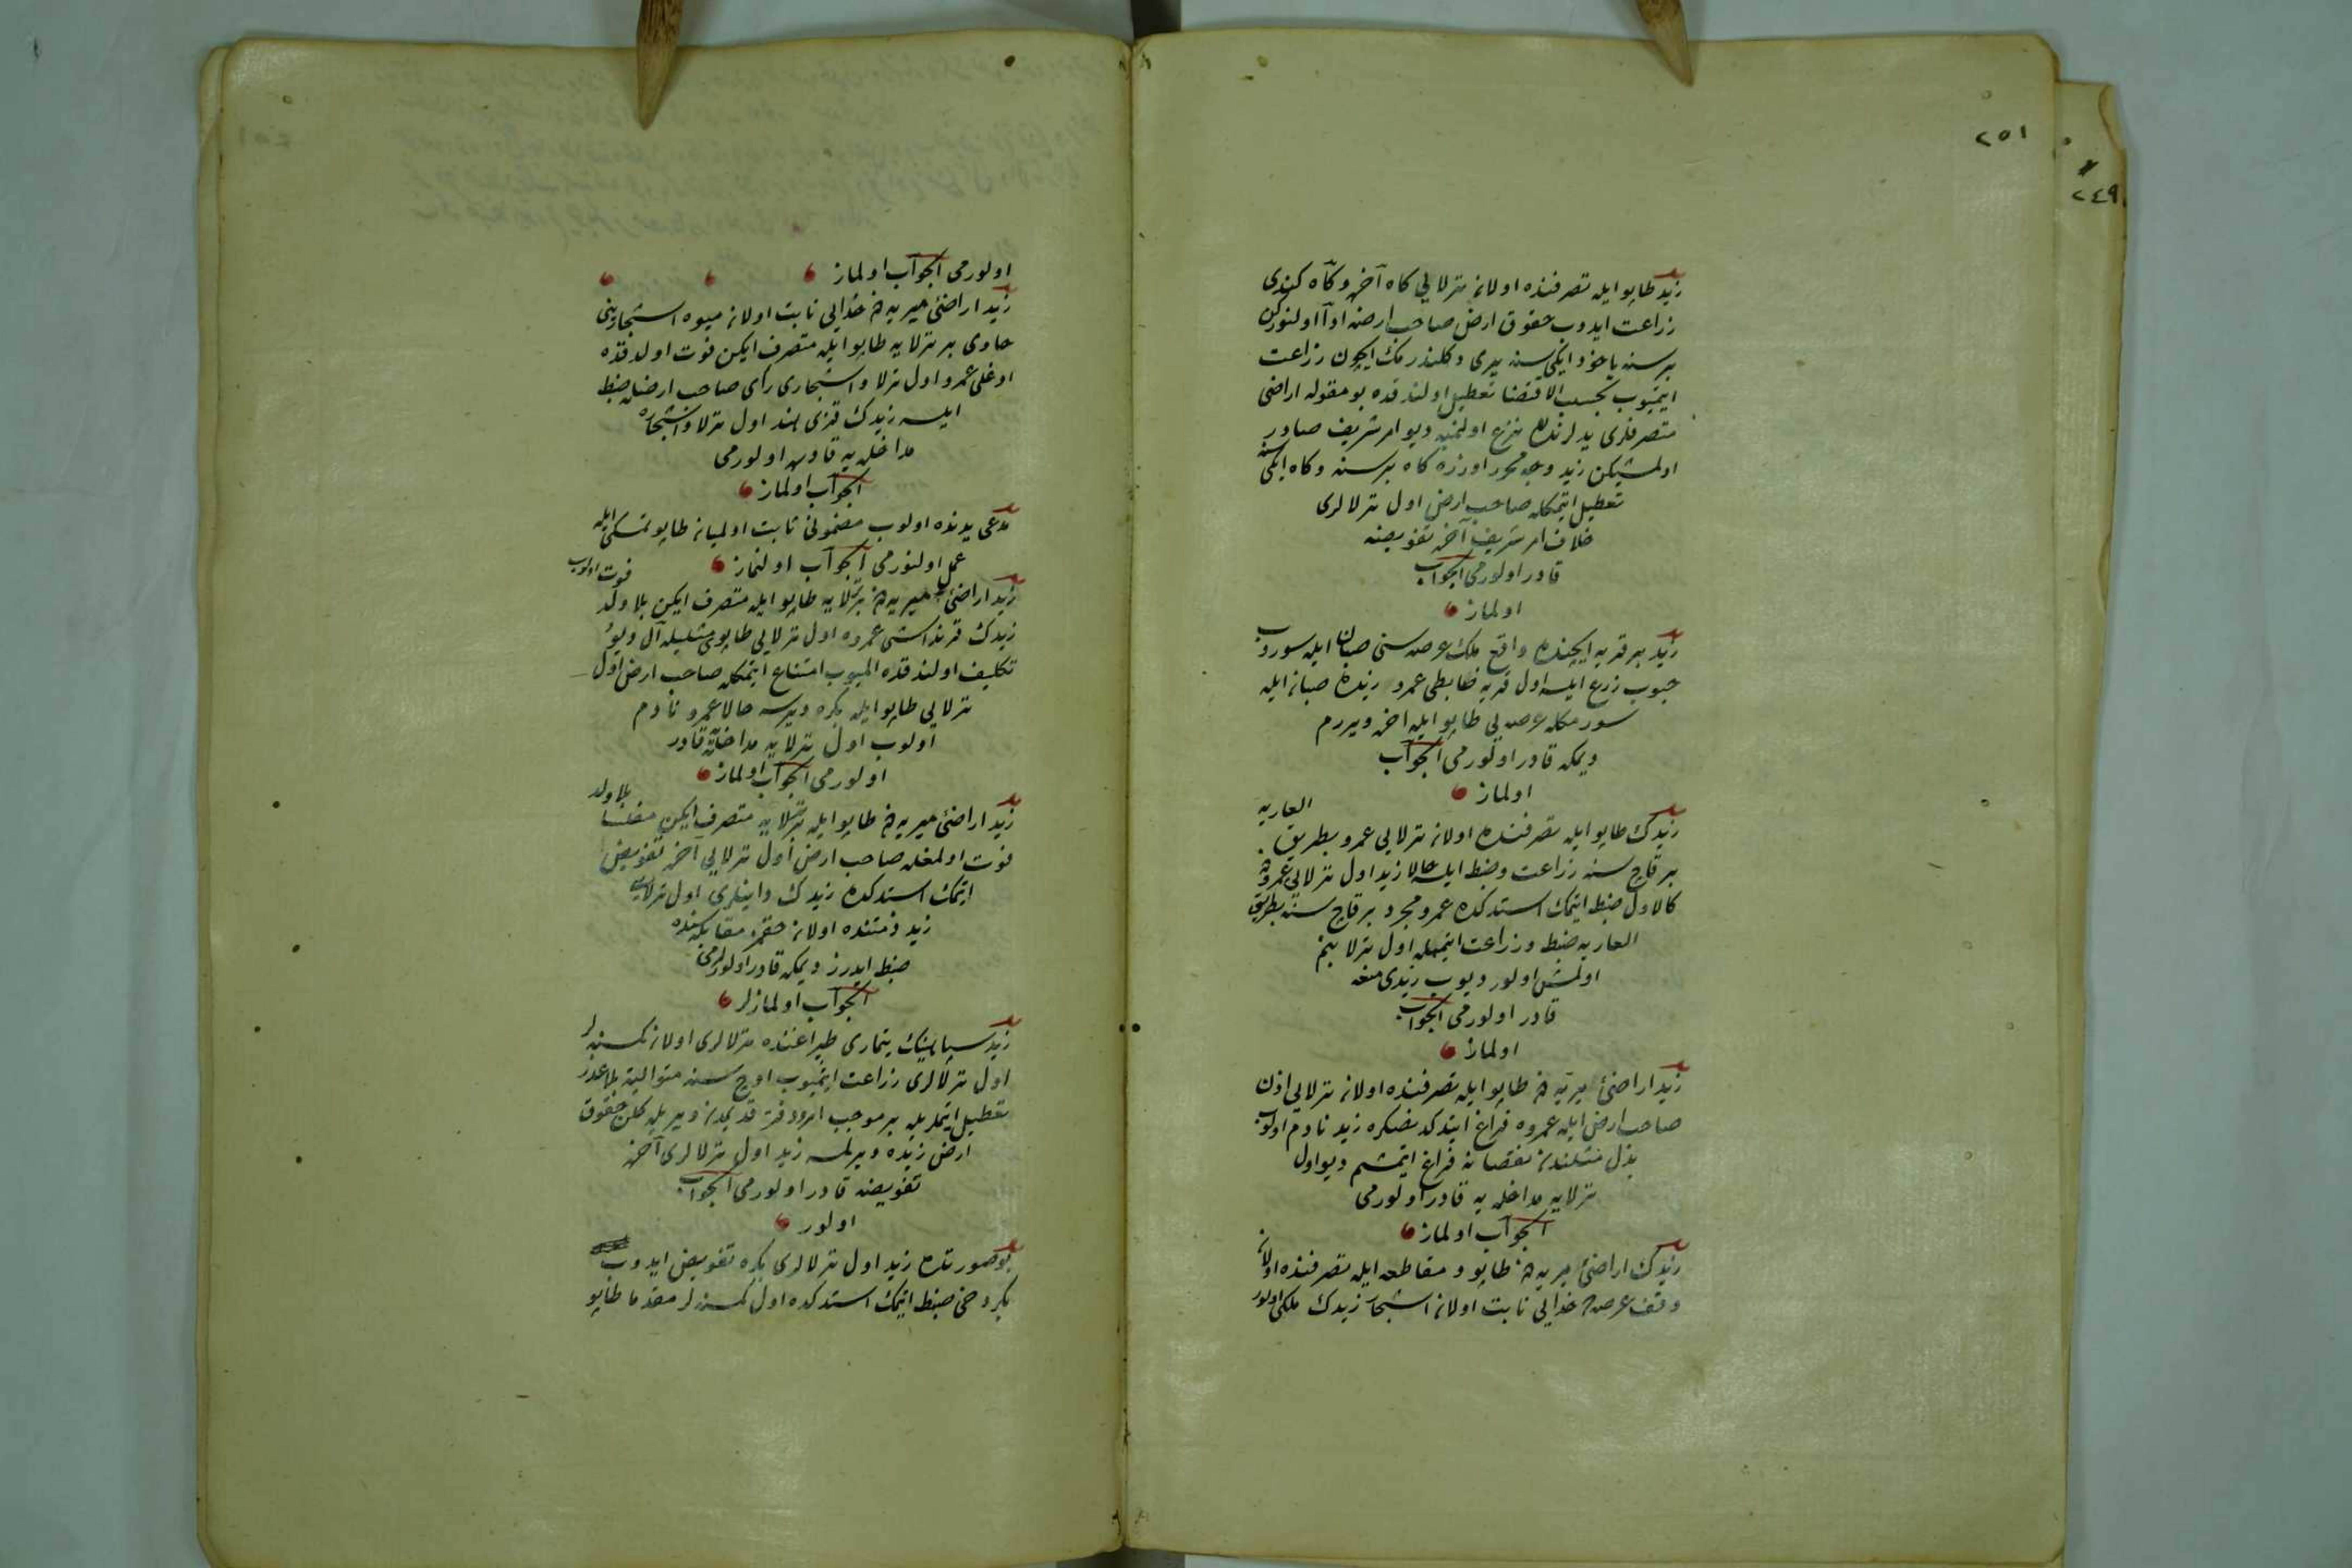 ٢٥١
٢٤٩
زید طاپو ایله تصرفنده اولان ترلالری کاه آخر و کاه کندی
زراعت ایدوب حقوق ارض صاحب ارضه ادا اولنورکن
بر سنه یاخود ایکی سنه یری دکلندرمك ایچون زراعت
ایتمیوب بحسب الاقتضا تعطیل اولندقده بو مقوله اراضی
متصرفلری یدلرندن نزع اولنمیه دیو امر شریف صادر
اولمشیکن زید وجه محرر اوزره کاه بر سنه و کاه ایکی سنه
تعطیل ایتمکله صاحب ارض اول ترلالری
خلاف امر شریف آخره تفویضه
قادر اولورمی الجواب
اولماز
زید بر قریه ایچنده واقع ملك عرصه سنی صبان ایله سوروب
حبوب زرع ایلسه اول قریه ضابطی عمرو زیده صبان ایله
سورمکله عرصه یی طاپو ایله آخره ویررم
دیمکه قادر اولورمی الجواب
اولماز
زیدك طاپو ایله تصرفنده اولان ترلایی عمرو بطریق العاریه
بر قاچ سنه زراعت وضبط ایلسه حالا زید اول ترلایی عمرودن
کالاول ضبط ایتمك استدکده عمرو مجرد بر قاچ سنه بطریق
العاریه ضبط وزراعت ایتمکله اول ترلا بنم
اولمش اولور دیوب زیدی منعه
قادر اولورمی الجواب
اولماز
زید اراضئ میریه دن طاپو ایله تصرفنده اولان ترلایی اذن
صاحب ارض ایله عمروه فراغ ایتدکدنصکره زید نادم اولوب
بدل مثلندن نقصانه فراغ ایتمشم دیو اول
ترلایه مداخله یه قادر اولورمی
الجواب اولماز
زیدك اراضئ میریه دن طاپو و مقاطعه ایله تصرفنده اولان
وقف عرصه ده خدایی نابت اولان اشجار زیدك ملکی اولور
اولورمی الجواب اولماز
زید اراضئ میریه دن خدایی نابت اولان میوه اشجارینی
حاوی بر ترلایه طاپو ایله متصرف ایکن فوت اولدقده
اوغلی عمرو اول ترلا و اشجاری رأی صاحب ارضله ضبط
ایلسه زیدك قزی هند اول ترلا و اشجاره
مداخله یه قادره اولورمی
الجواب اولماز
مدعی یدنده اولوب مضمونی ثابت اولمیان طاپو تمسکی ایله
عمل اولنورمی الجواب اولنماز
زید اراضئ میریه دن بر ترلایه طاپو ایله متصرف ایکن بلا ولد فوت اولوب
زیدك قرنداشی عمروه اول ترلایی طاپوی مثلیله آل دیو
تکلیف اولندقده المیوب امتناع ایتمکله صاحب ارض اول
ترلایی طاپو ایله بکره ویرسه حالا عمرو نادم
اولوب اول ترلایه مداخله یه قادر
اولورمی الجواب اولماز
زید اراضئ میریه دن طاپو ایله بر ترلایه متصرف ایکن مفلسا بلا ولد
فوت اولمغله صاحب ارض اول ترلایی آخره تفویض
ایتمك استدکده زیدك داینلری اول ترلایی
زید ذمتنده اولان حقمز مقابله سنده
ضبط ایدرز دیمکه قادر اولورلرمی
الجواب اولمازلر
زید سپاهینك تیماری طپراغنده ترلالری اولان کمسنه لر
اول ترلالری زراعت ایتمیوب اوچ سنه متوالیة بلا عذر
تعطیل ایتملریله بر موجب امر و دفتر قدیمدن ویریله کلن حقوق
ارض زیده ویرلمسه زید اول ترلالری آخره
تفویضه قادر اولورمی الجواب
اولور
بو صورتده زید اول ترلالری بکره تفویض ایدوب
بکر دخی ضبط ایتمك استدکده اول کمسنه لر مقدما طاپو